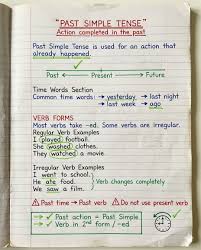 "PAST SIMPLE TENSE"
Action completed in the past
Past Simple Tense is used for an action that
already happened.
Past ← Present → Future
Time Words Section
Common time words → yesterday, → last night
→ last week → ago
VERB FORMS
Most verbs take -ed. Some verbs are irregular.
Regular Verb Examples
I played football.
She washed clothes.
They watched a movie.
Irregular Verb Examples
I went to school.
He ate food.
We saw a film.
Verb changes completely
Past time → Past verb
Do not use present verb
→ Past action = Past Simple
→ Verb in 2nd form / -ed